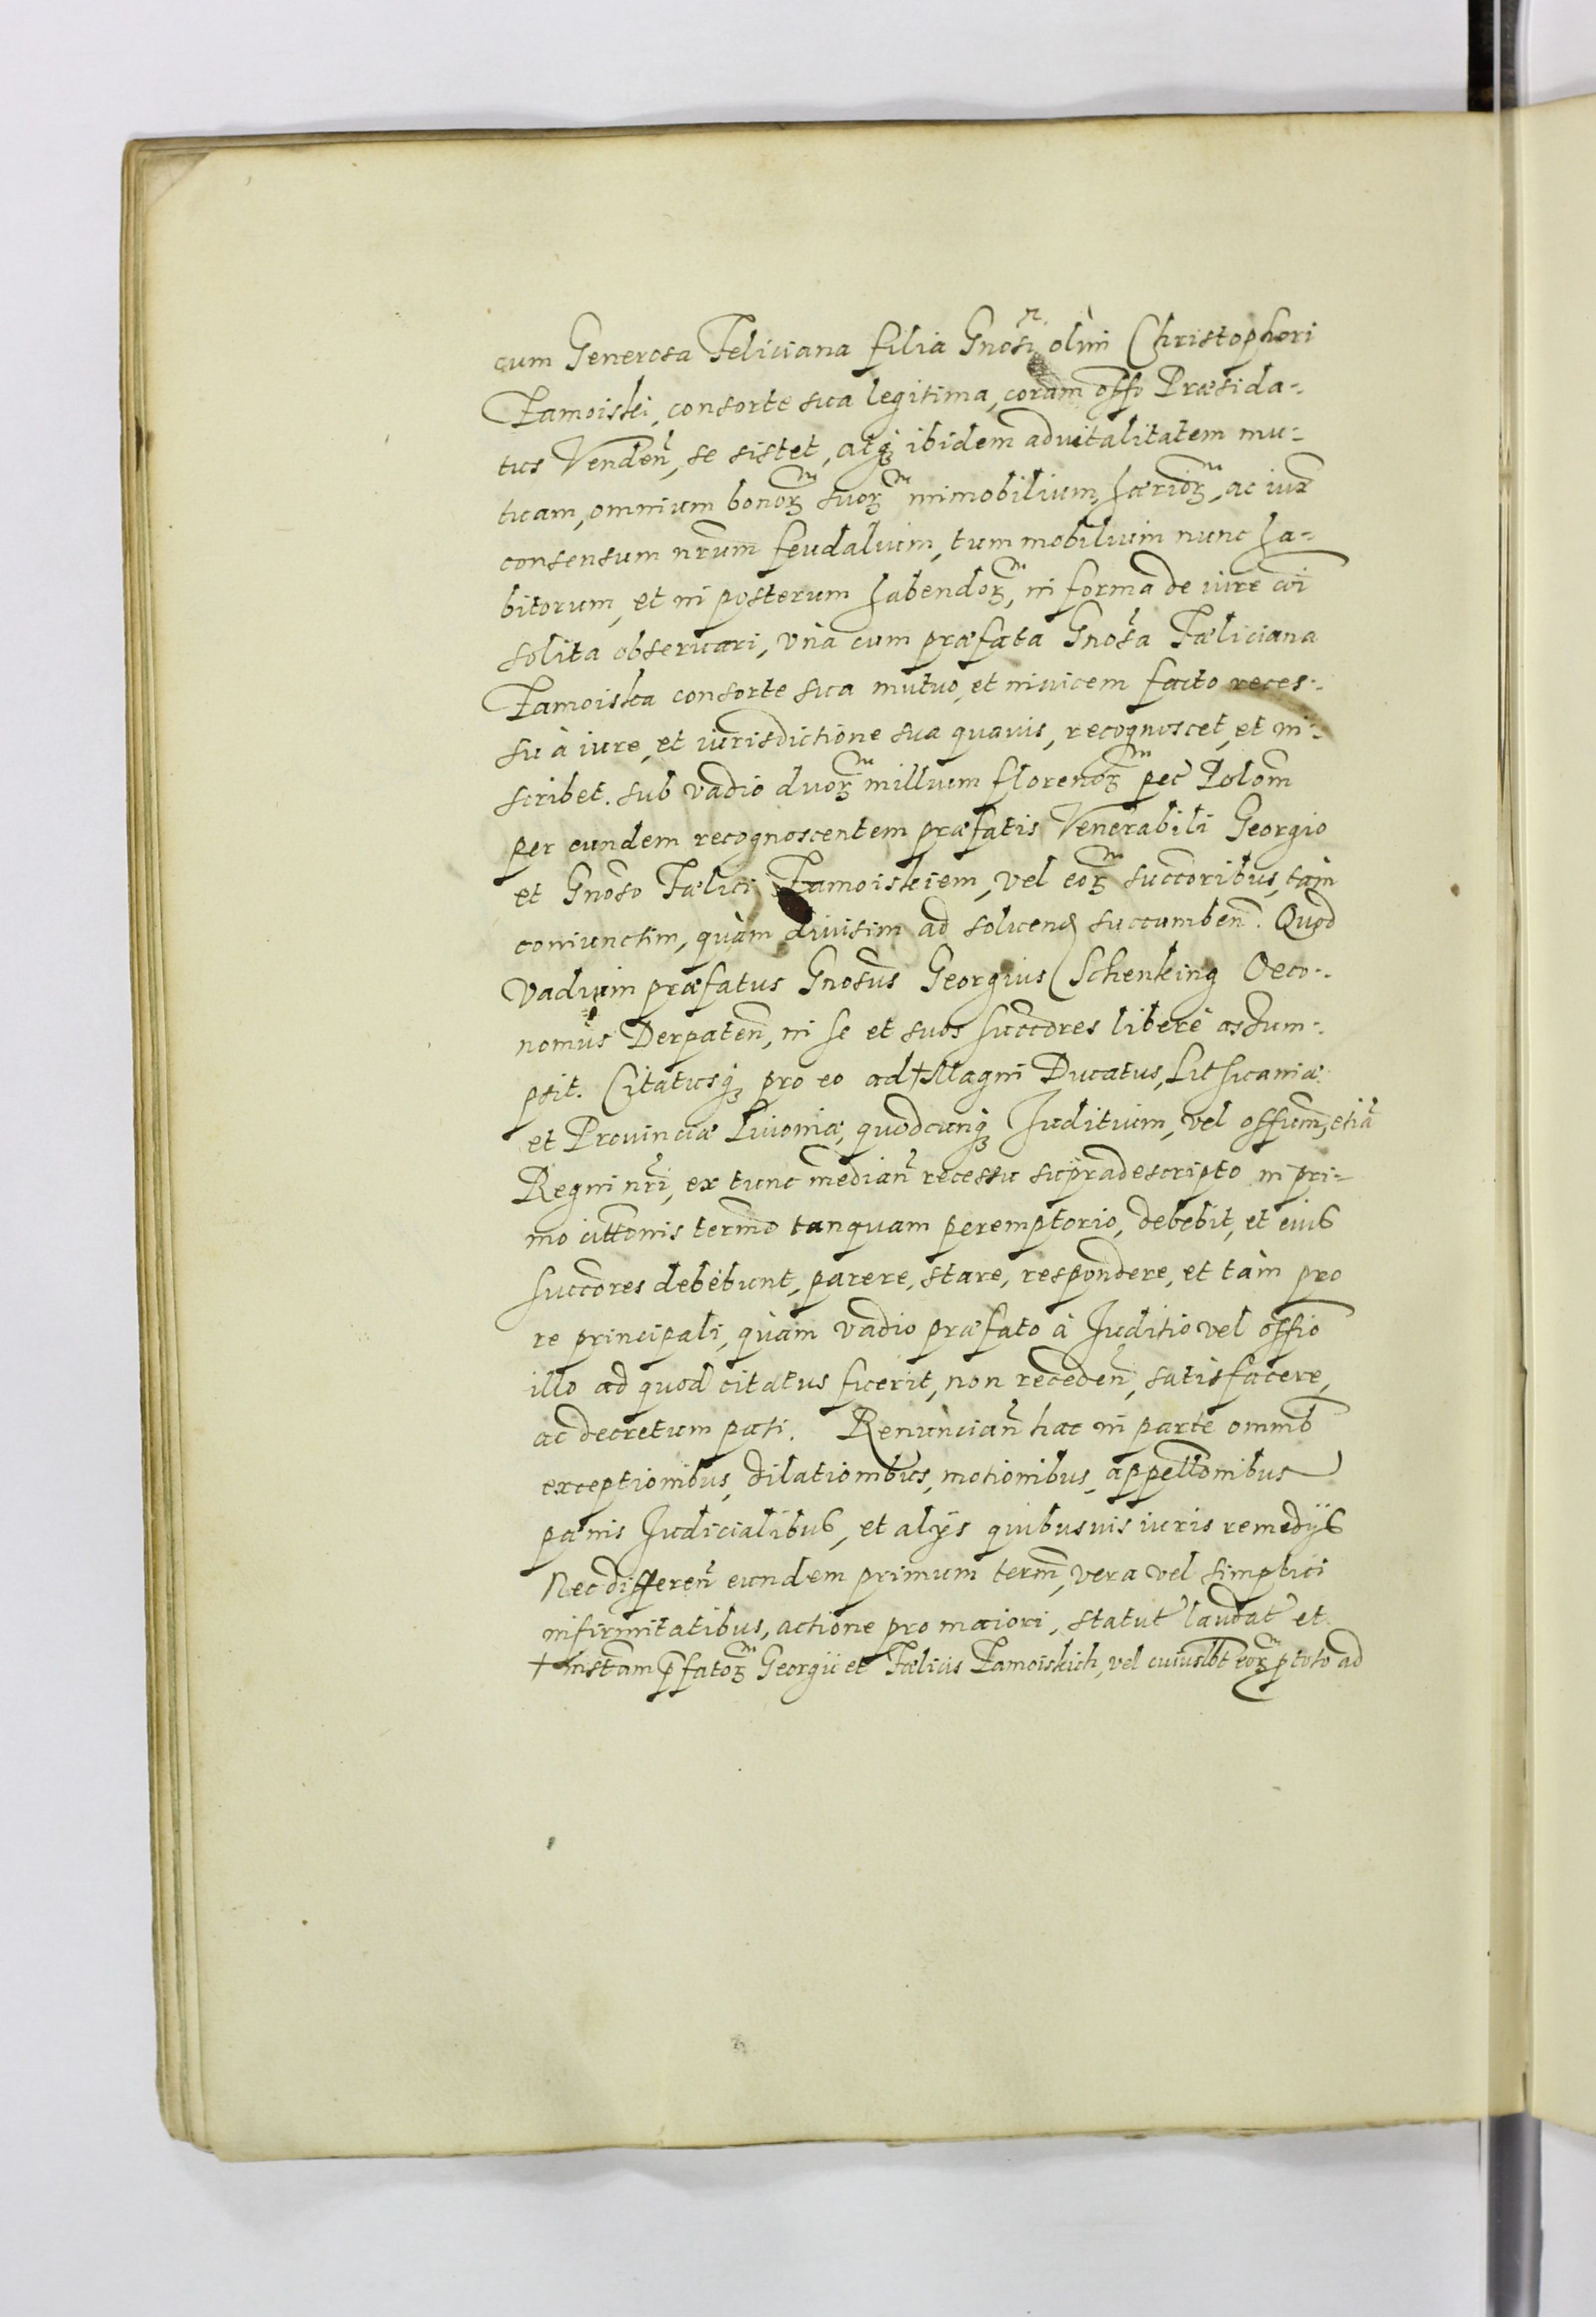 cum Generosa Feliciana filia Gnosi olim Christophori
Zamoiski, consorte sua legitima, coram offo Præsida-
tus Venden, se sistet, atq ibidem advitalitatem mu-
tuam, omnium bonor suor immobilium hærior, ac iux
consensum nrum feudalium, tum mobilium nunc ha-
bitorum, et in posterum habendor, in forma de iure coi
solita observari, unà cum præfata Gnosa Fæliciana
Zamoiska consorte sua mutuo, et invicem facto reces-
su à iure, et iurisdictione sua quavis, recognoscet, et in-
scribet. sub vadio duor millium florenor pec Polom
per eundem recognoscentem præfatis Venerabili Georgio
et Gnoso Fælici Zamoiskiem, vel eor succoribus, tàm
coniunctim, quàm divisim ad solvend succumben. Quod
vadium præfatus Gnosus Georgius Schenking Oeco-
nomus Derpaten, in se et suos succores liberè assum-
psit. Citatusq pro eo ad † Magni Ducatus, Lithuaniæ
et Provinciæ Livoniæ, quodcunq Juditium, vel offium, etia
Regni nri, ex tunc median recessu supradescripto in pri-
mo cittonis termo tanquam peremptorio, debebit, et eius
succores debebunt, parere, stare, respondere, et tàm pro
re principali, quàm vadio præfato à Juditio vel offio
illo ad quod citatus fuerit, non receden, satisfacere,
ac decretum pati. Renuncian hac in parte omnib
exceptionibus, dilationibus, motionibus, appellonibus
pænis Judicialibus, et alijs quibusvis iuris remedijs
Nec differen eundem primum term, vera vel simplici
infirmitatibus, actione pro maiori, statut laudat et
† instam pfator Georgii et Fælicis Zamoiskich, vel cuiuslbt eor ptoto ad